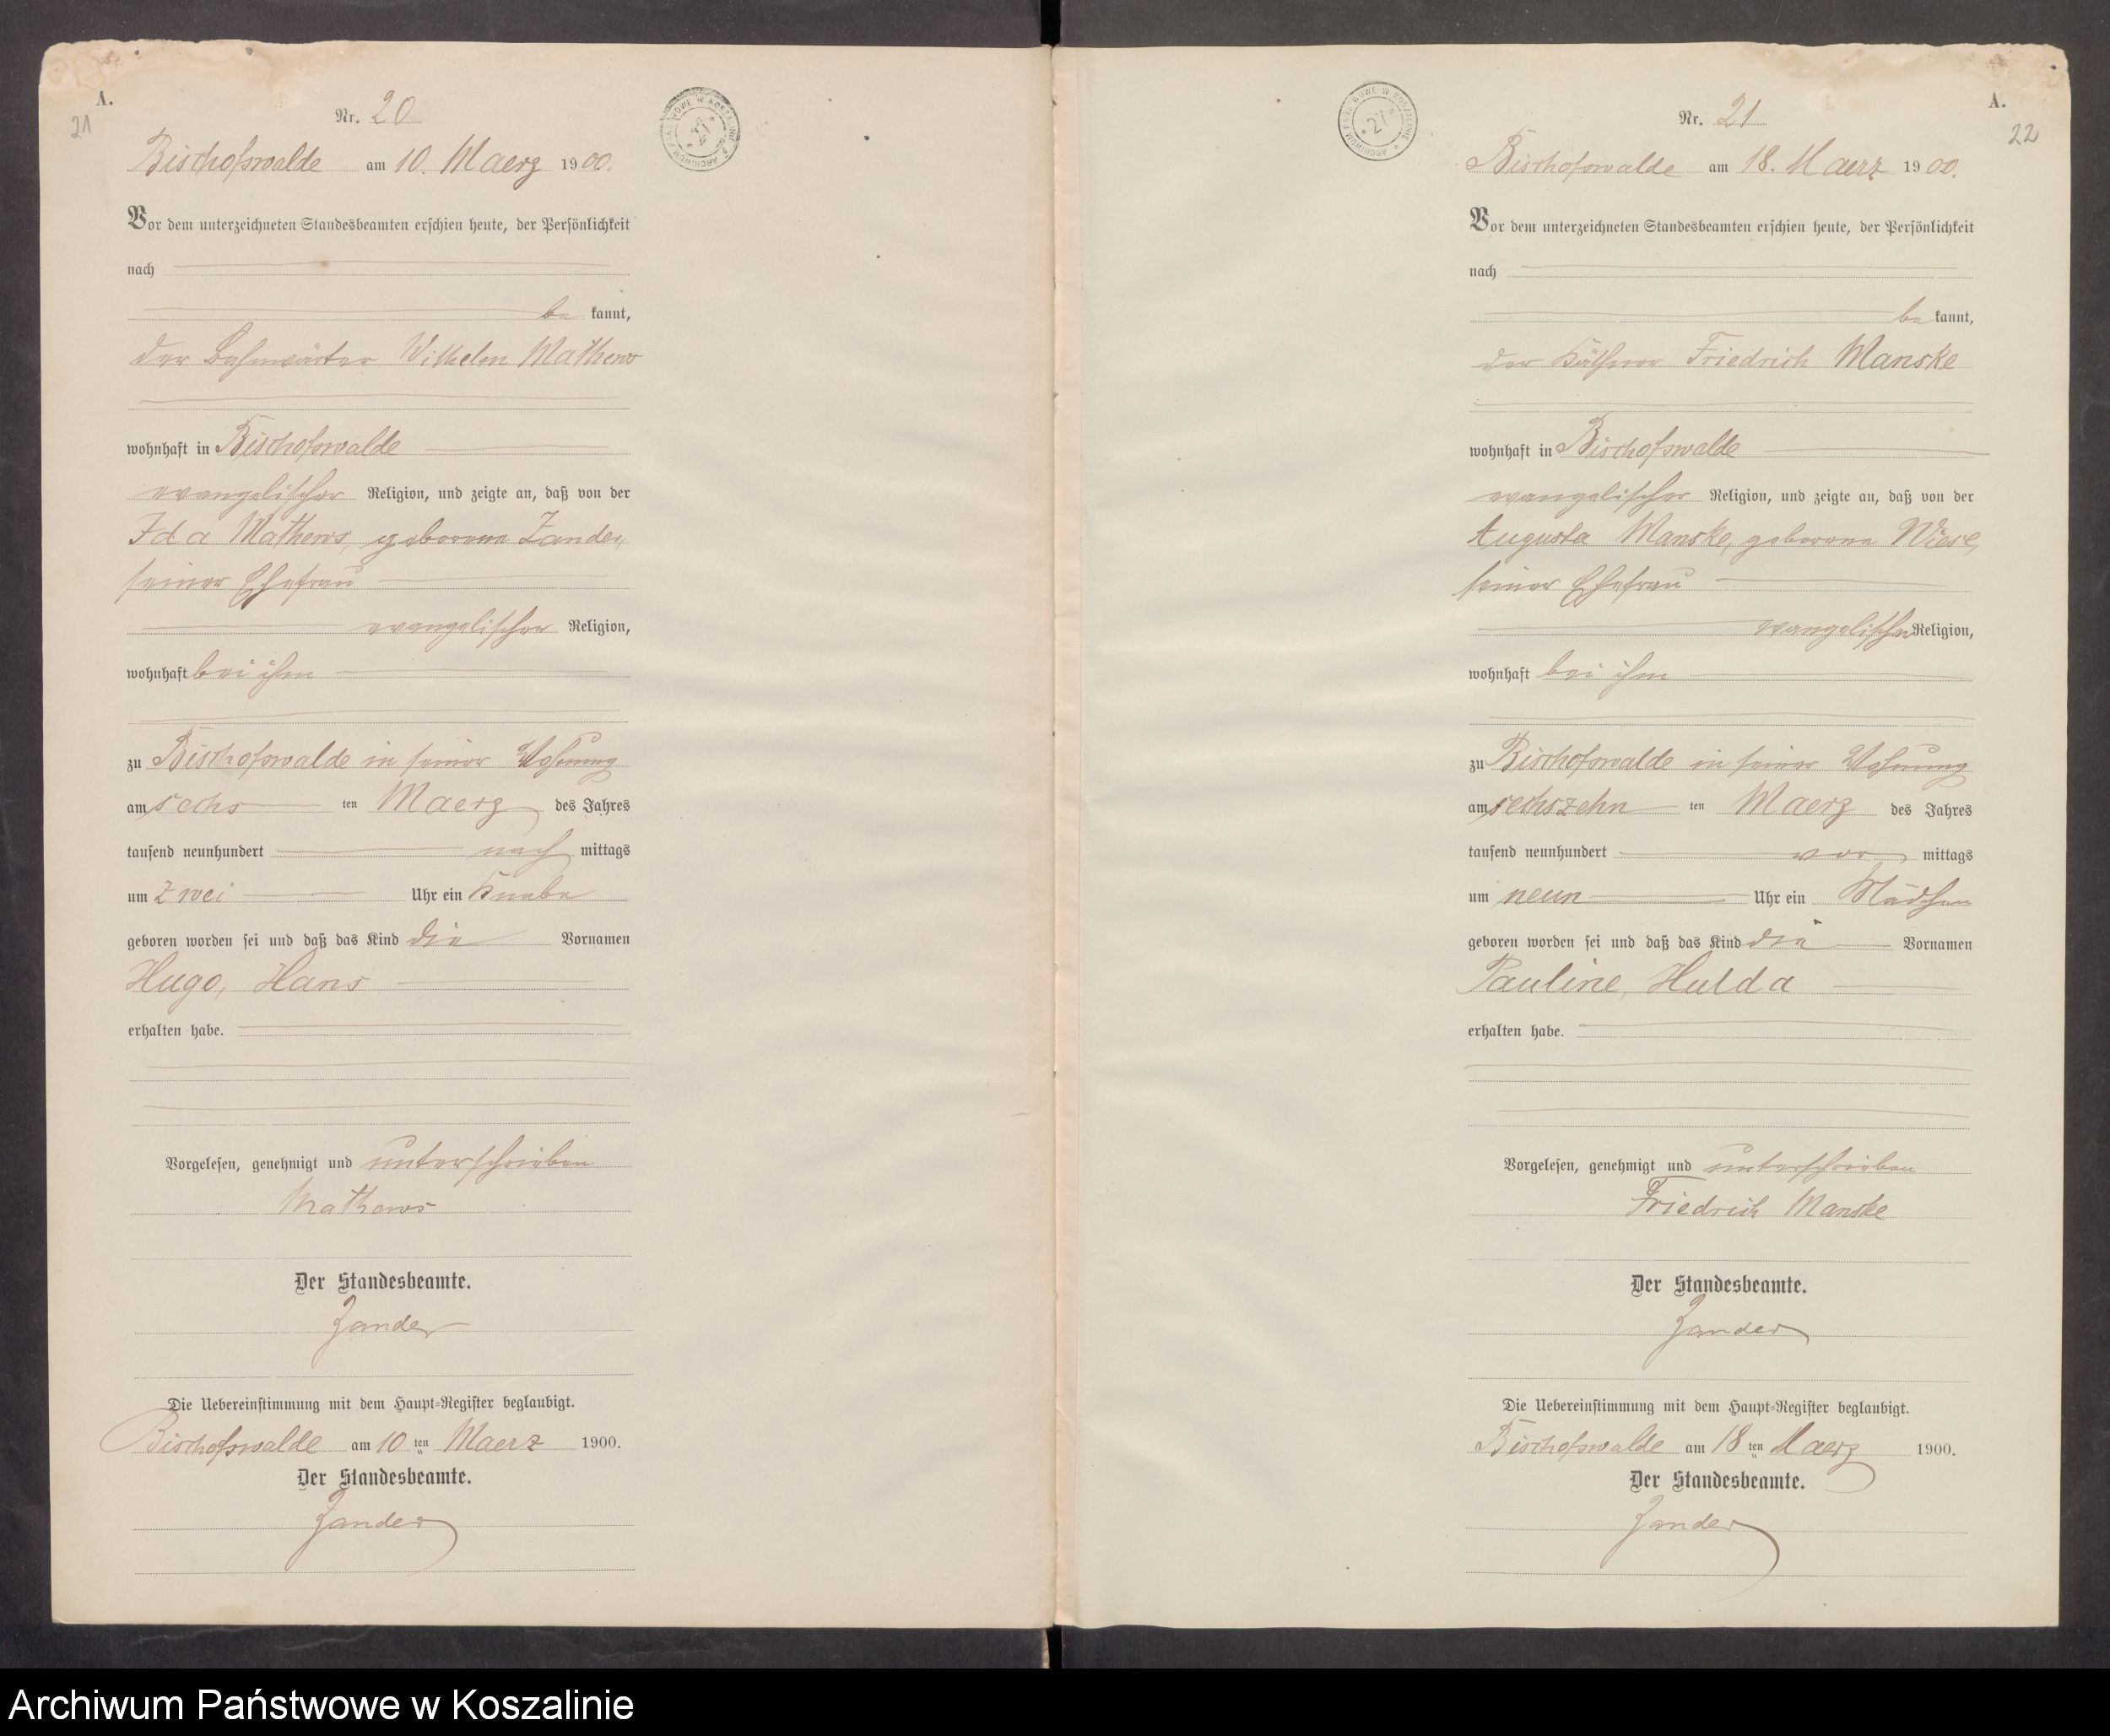 A.
21
Nr. 20
Bischofswalde am 10. Maerz 1900.
Vor dem unterzeichneten Standesbeamten erschien heute, der Persönlichkeit
nach
be kannt,
der Bahnwärter Wilhelm Mathews
wohnhaft in Bischofswalde
evangelischer Religion, und zeigte an, daß von der
Ida Mathews, geborene Zander,
seiner Ehefrau
evangelischer Religion,
wohnhaft bei ihm
zu Bischofswalde in seiner Wohnung
am sechs ten Maerz des Jahres
tausend neunhundert nach mittags
um zwei Uhr ein Knabe
geboren worden sei und daß das Kind die Vornamen
Hugo, Hans
erhalten habe.
Vorgelesen, genehmigt und unterschrieben
Mathews
Der Standesbeamte.
Zander
Die Uebereinstimmung mit dem Haupt-Register beglaubigt.
Bischofswalde am 10 ten Maerz 1900.
Der Standesbeamte.
Zander
A.
22
Nr. 21
Bischofswalde am 18. Maerz 1900.
Vor dem unterzeichneten Standesbeamten erschien heute, der Persönlichkeit
nach
be kannt,
der Käthner Friedrich Manske
wohnhaft in Bischofswalde
evangelischer Religion, und zeigte an, daß von der
Augusta Manske, geborene Wiese,
seiner Ehefrau
evangelischer Religion,
wohnhaft bei ihm
zu Bischofswalde in seiner Wohnung
am sechszehn ten Maerz des Jahres
tausend neunhundert vor mittags
um neun Uhr ein Mädchen
geboren worden sei und daß das Kind die Vornamen
Pauline, Hulda
erhalten habe.
Vorgelesen, genehmigt und unterschrieben
Friedrich Manske
Der Standesbeamte.
Zander
Die Uebereinstimmung mit dem Haupt-Register beglaubigt.
Bischofswalde am 18 ten Maerz 1900.
Der Standesbeamte.
Zander
Archiwum Państwowe w Koszalinie